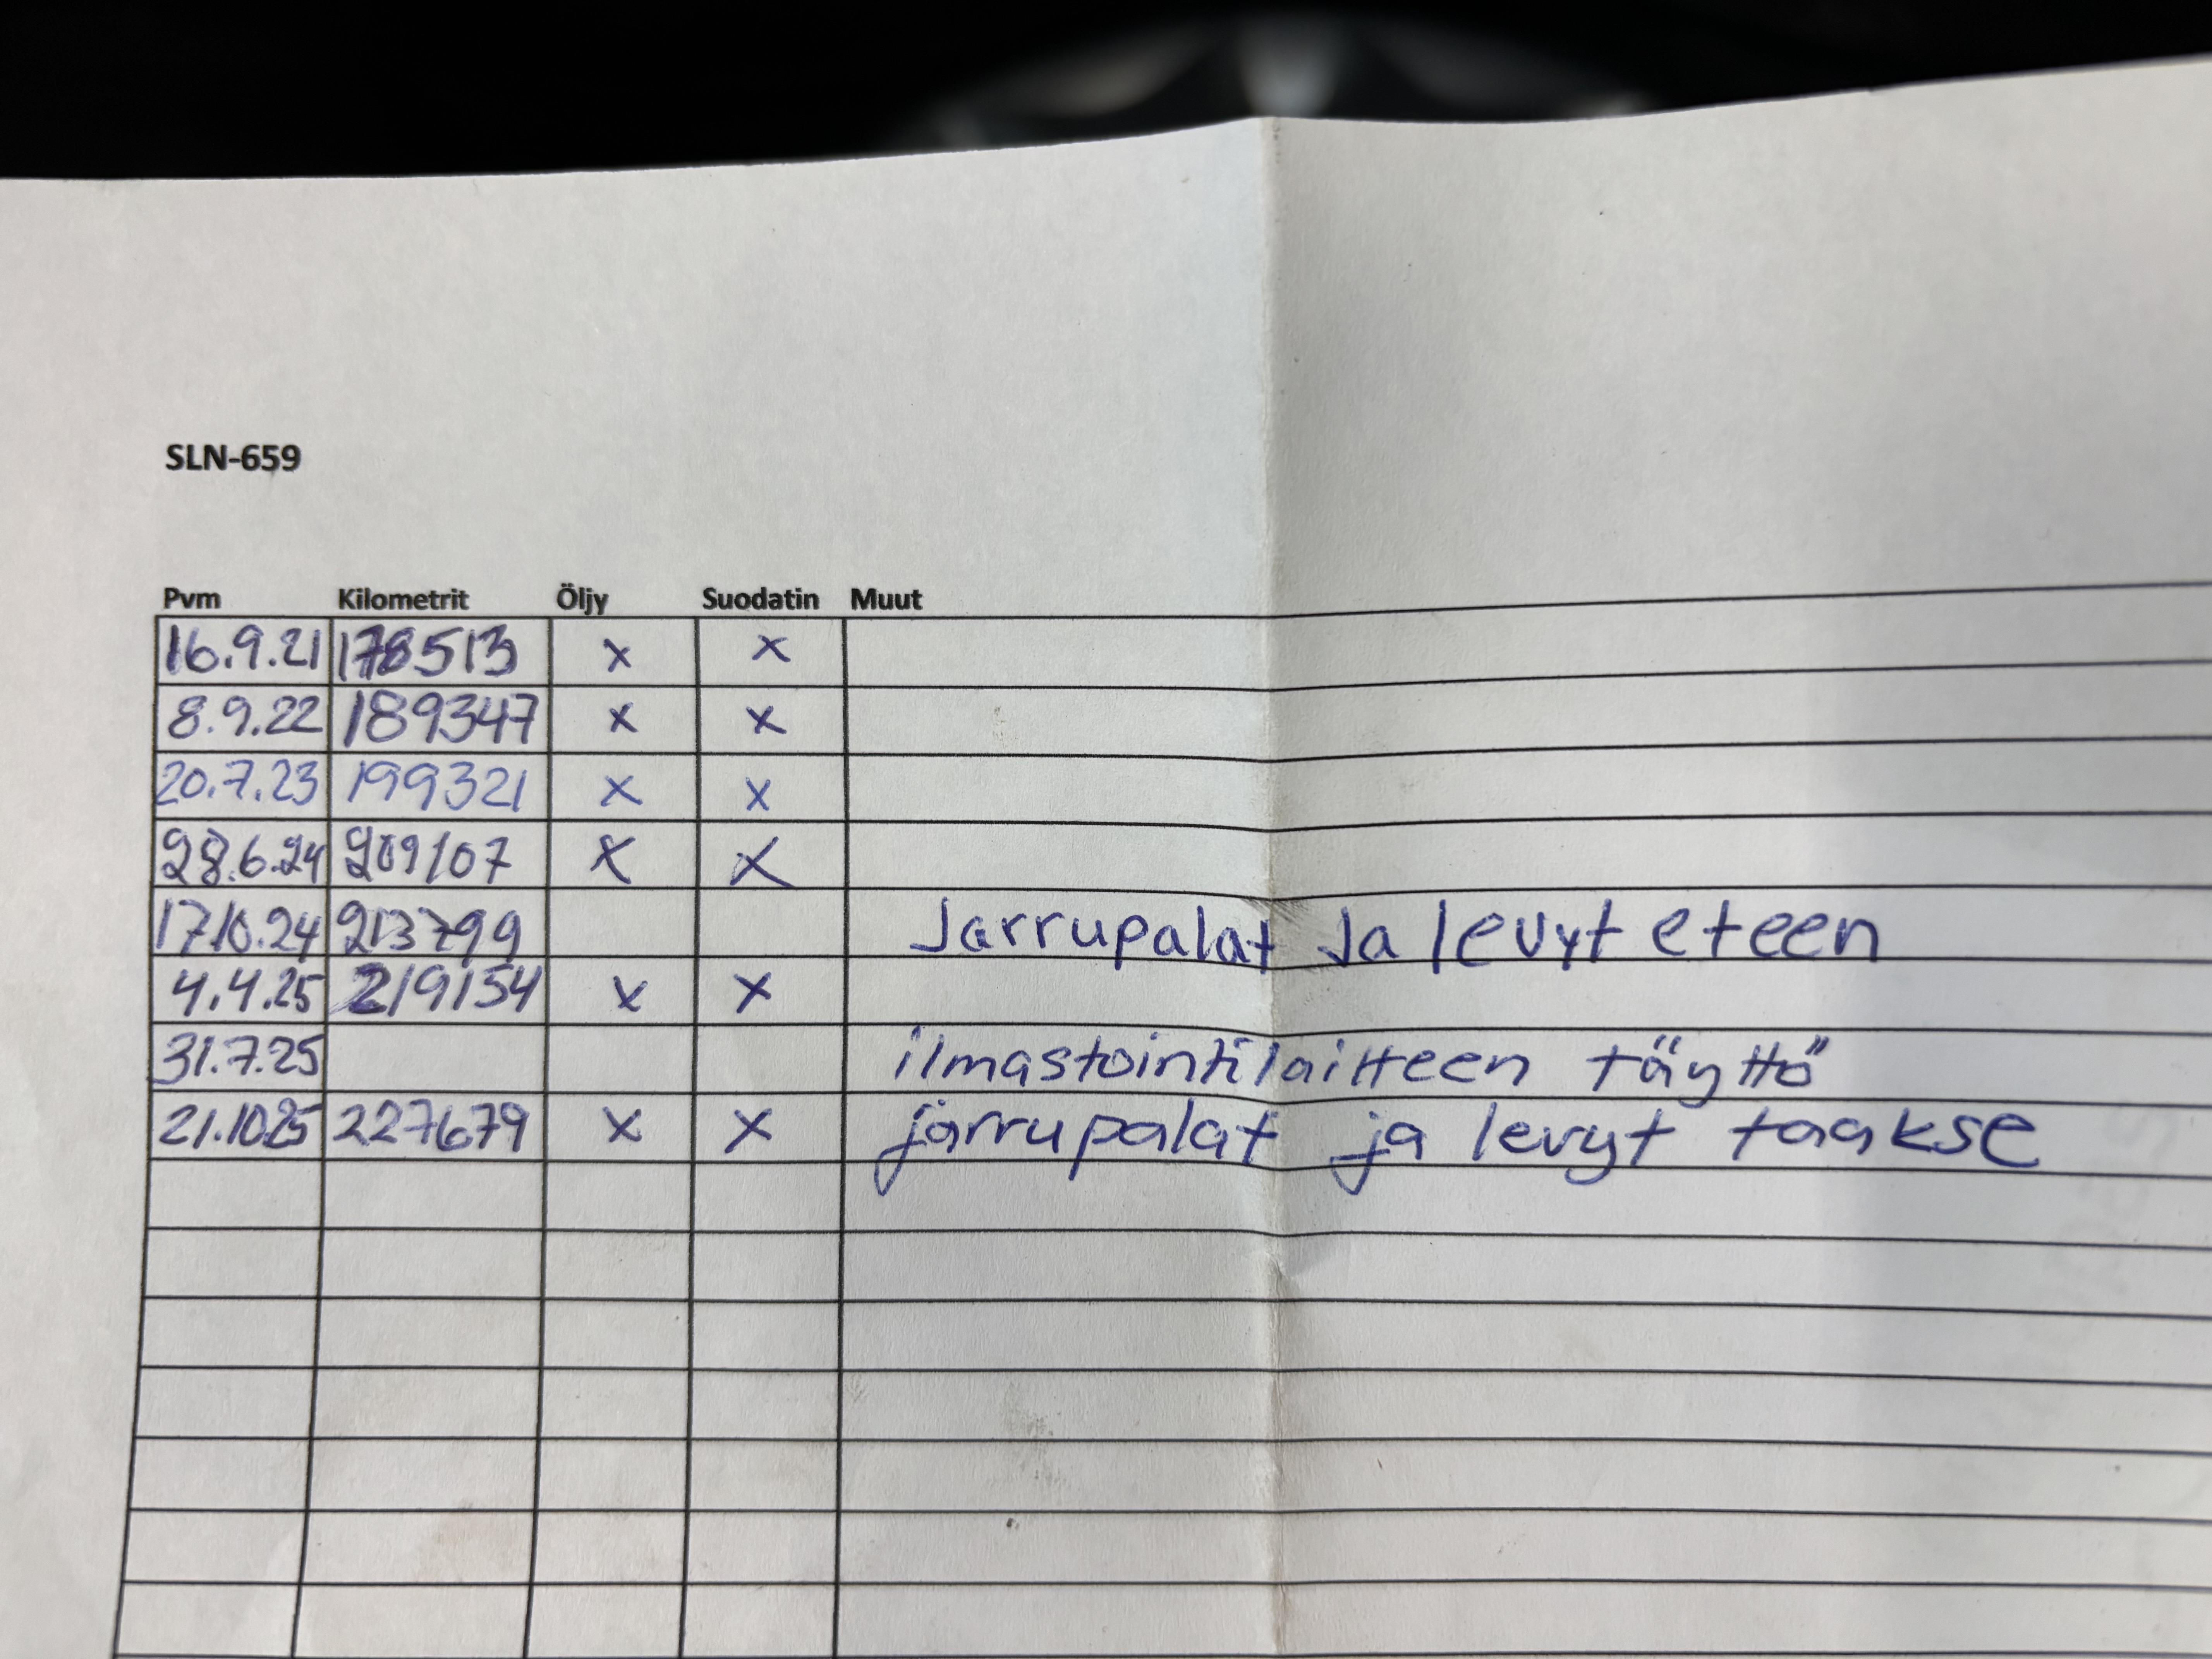 SLN-659
Pvm Kilometrit Öljy Suodatin Muut
16.9.21 178513 x x
8.9.22 189347 x x
20.7.23 199321 x x
28.6.24 209107 x x
17.10.24 213799 Jarrupalat Ja levyt eteen
4.4.25 219154 x x
31.7.25 ilmastointilaitteen täyttö
21.10.25 227679 x x jarrupalat ja levyt taakse